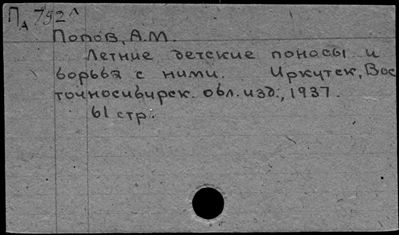 Пд 752л
Попов, А.М.
Летние детские поносы и
борьба с ними. Иркутск, Вос
точносибирск. обл. изд., 1937.
61 стр.